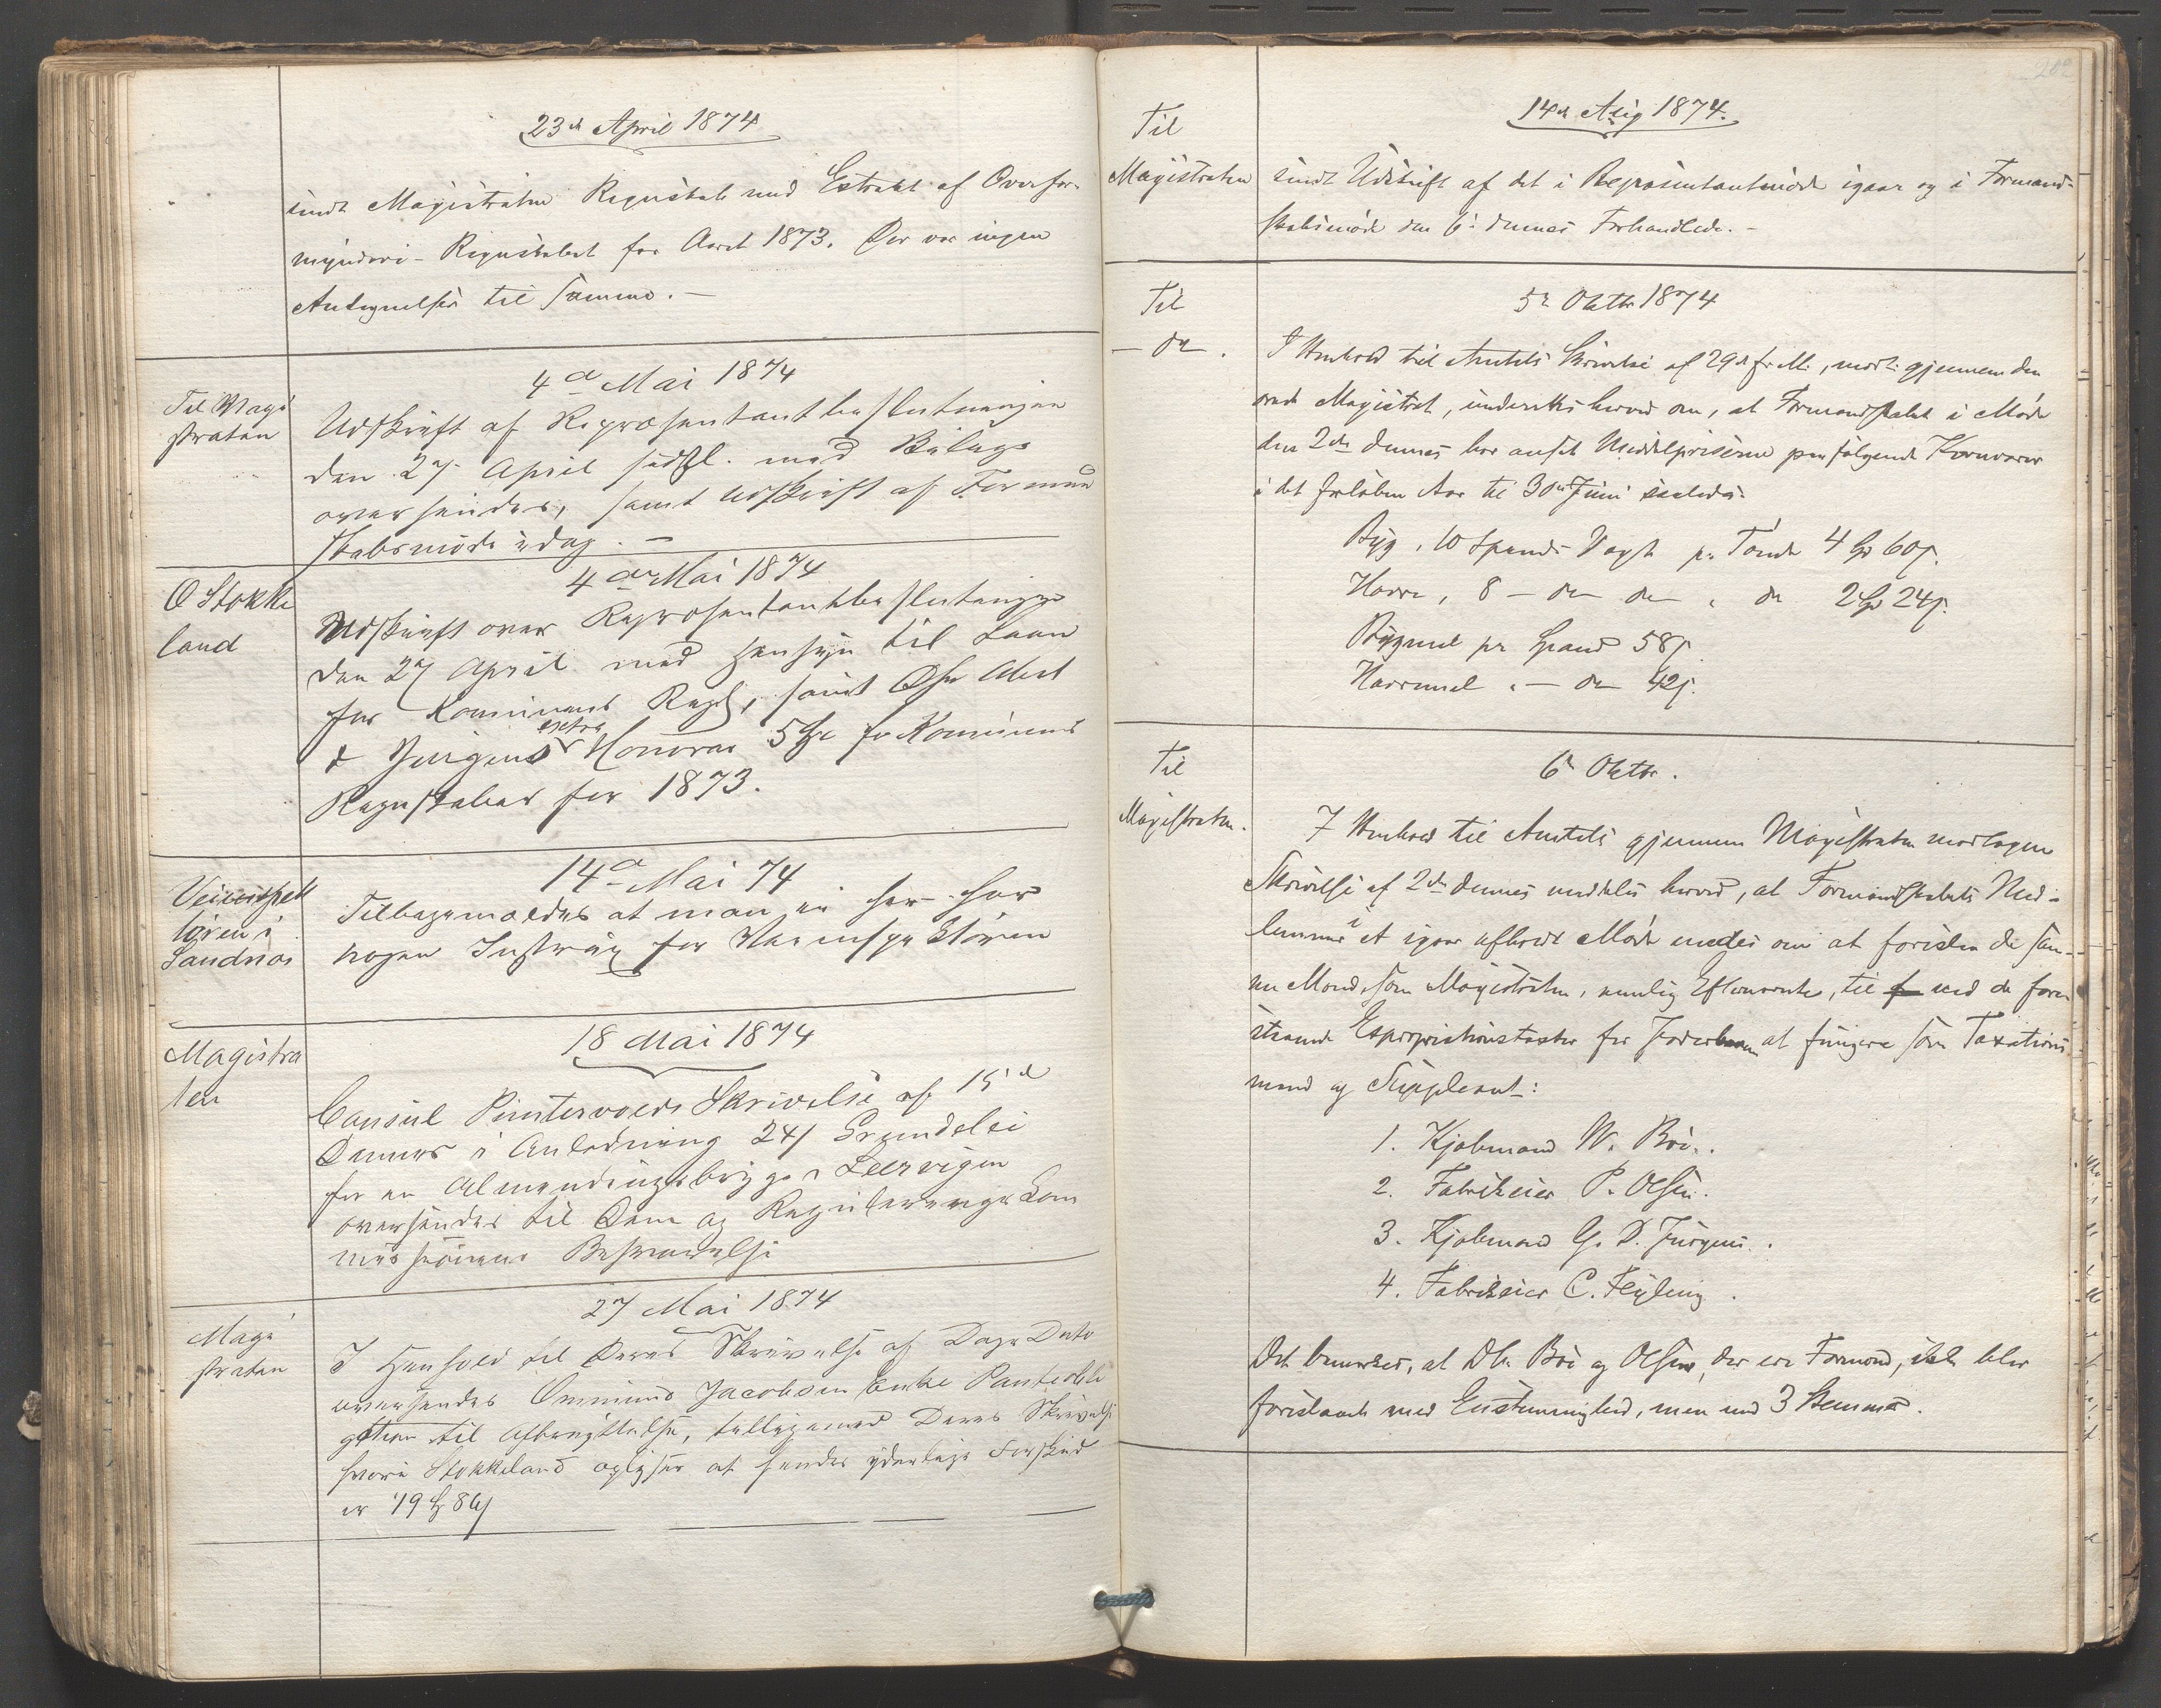 23de April 1874
sendt Magistraten Regnskab med Extrakt af Overfor-
mynderi-Regnskabet for Aaret 1873. Der var ingen
Antegnelser til samme. -
Til Magi
straten
4de Mai 1874
Udskrift af Repræsentantbeslutningen
den 27 April sidstl. med Bilage
oversendes, samt Udskrift af Formand
skabsmöde idag. -
O Stokke
land
4de Mai 1874
Udskrift over Repræsentantbeslutninger
den 27 April med Hensyn til Laan
for Kommunens Regn., samt
& Jürgens extra Honorar 5 Spd for Kommunens
Regnskaber for 1873.
Veiinspek
tören i
Sandnæs
14de Mai 74
Tilbagemeldes at man ei her har
nogen Instrux for Veiinspektören
Magistra
ten
18 Mai 1874
Consul Puntervolds Skrivelse af 15de
Dennes i Anledning 24 s Grundleie
for en Almendingsbrygge i Leervigen
oversendes til Dem og Reguleringskom
missionens Besvarelse
Magi
straten
27 Mai 1874
I Henhold til Deres Skrivelse af Dags Dato
oversendes Ommund Jacobsens Enke Panteobli
gation til Afbenyttelse, tillagemed Deres Skrivelse
hvori Stokkeland oplyser at hendes yderlige Forskud
er 19 Spd 84 s
Til
Magistraten
14de Aug 1874.
sendt Udskrift af det i Repræsentantmöde igaar og i Formand-
skabsmöde den 6te dennes Forhandlede. -
Til
- do -.
5te Oktbr 1874
I Henhold til Amtets Skrivelse af 29de f. M., modt. gjennem den
ærede Magistrat, underrettes herved om, at Formandskabet i Möde
den 2den dennes har ansat Middelpriserne paa fölgende Kornvarer
i det forløbne Aar til 30te Juni saaledes:
Byg, 10 Spands Vægt pr. Tønde 4 Spd 60 s.
Havre, 8 - do do " do 2 Spd 24 s.
Bygmel pr Spand 58 s.
Havremel " - do - 42 s.
Til
Magistraten.
6te Oktbr.
I Henhold til Amtets gjennem Magistraten modtagne
Skrivelse af 2den dennes meddeles herved, at Formandskabets Med-
lemmer i et igaar afholdt Möde enedes om at foreslaa de sam-
me Mænd, som Magistraten, nemlig Efternævnte, til ved de fore-
staaende Expropriationstaxter for Jæderbanen at fungere som Taxations
mænd og Suppleant:
1. Kjøbmand W. Bøe.
2. Fabrikeier P. Olsen.
3. Kjøbmand G. D. Jürgens.
4. Fabrikeier C. Feyling.
Det bemærkes, at DHr. Bøe og Olsen, der ere Formænd, ikke blev
foreslaaet med Enstemmighed, men med 3 Stemmer.